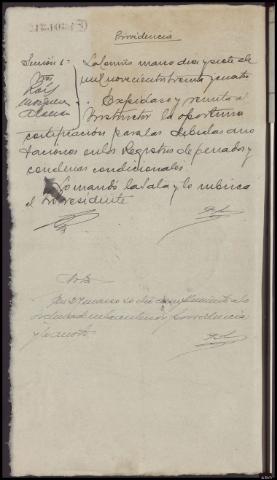 Providencia
Sección 1ª La Coruña marzo diez y siete de
mil novecientos treinta y cuatro
Expídase y remita al
Instructor la oportuna
certificación para las debidas ano
taciones en los Registros de penados y
condenas condicionales.
Lo mandó la Sala y lo rubrica
el Sr Presidente
Nota
marzo se dió cumplimiento a lo
ordenado en la anterior providencia